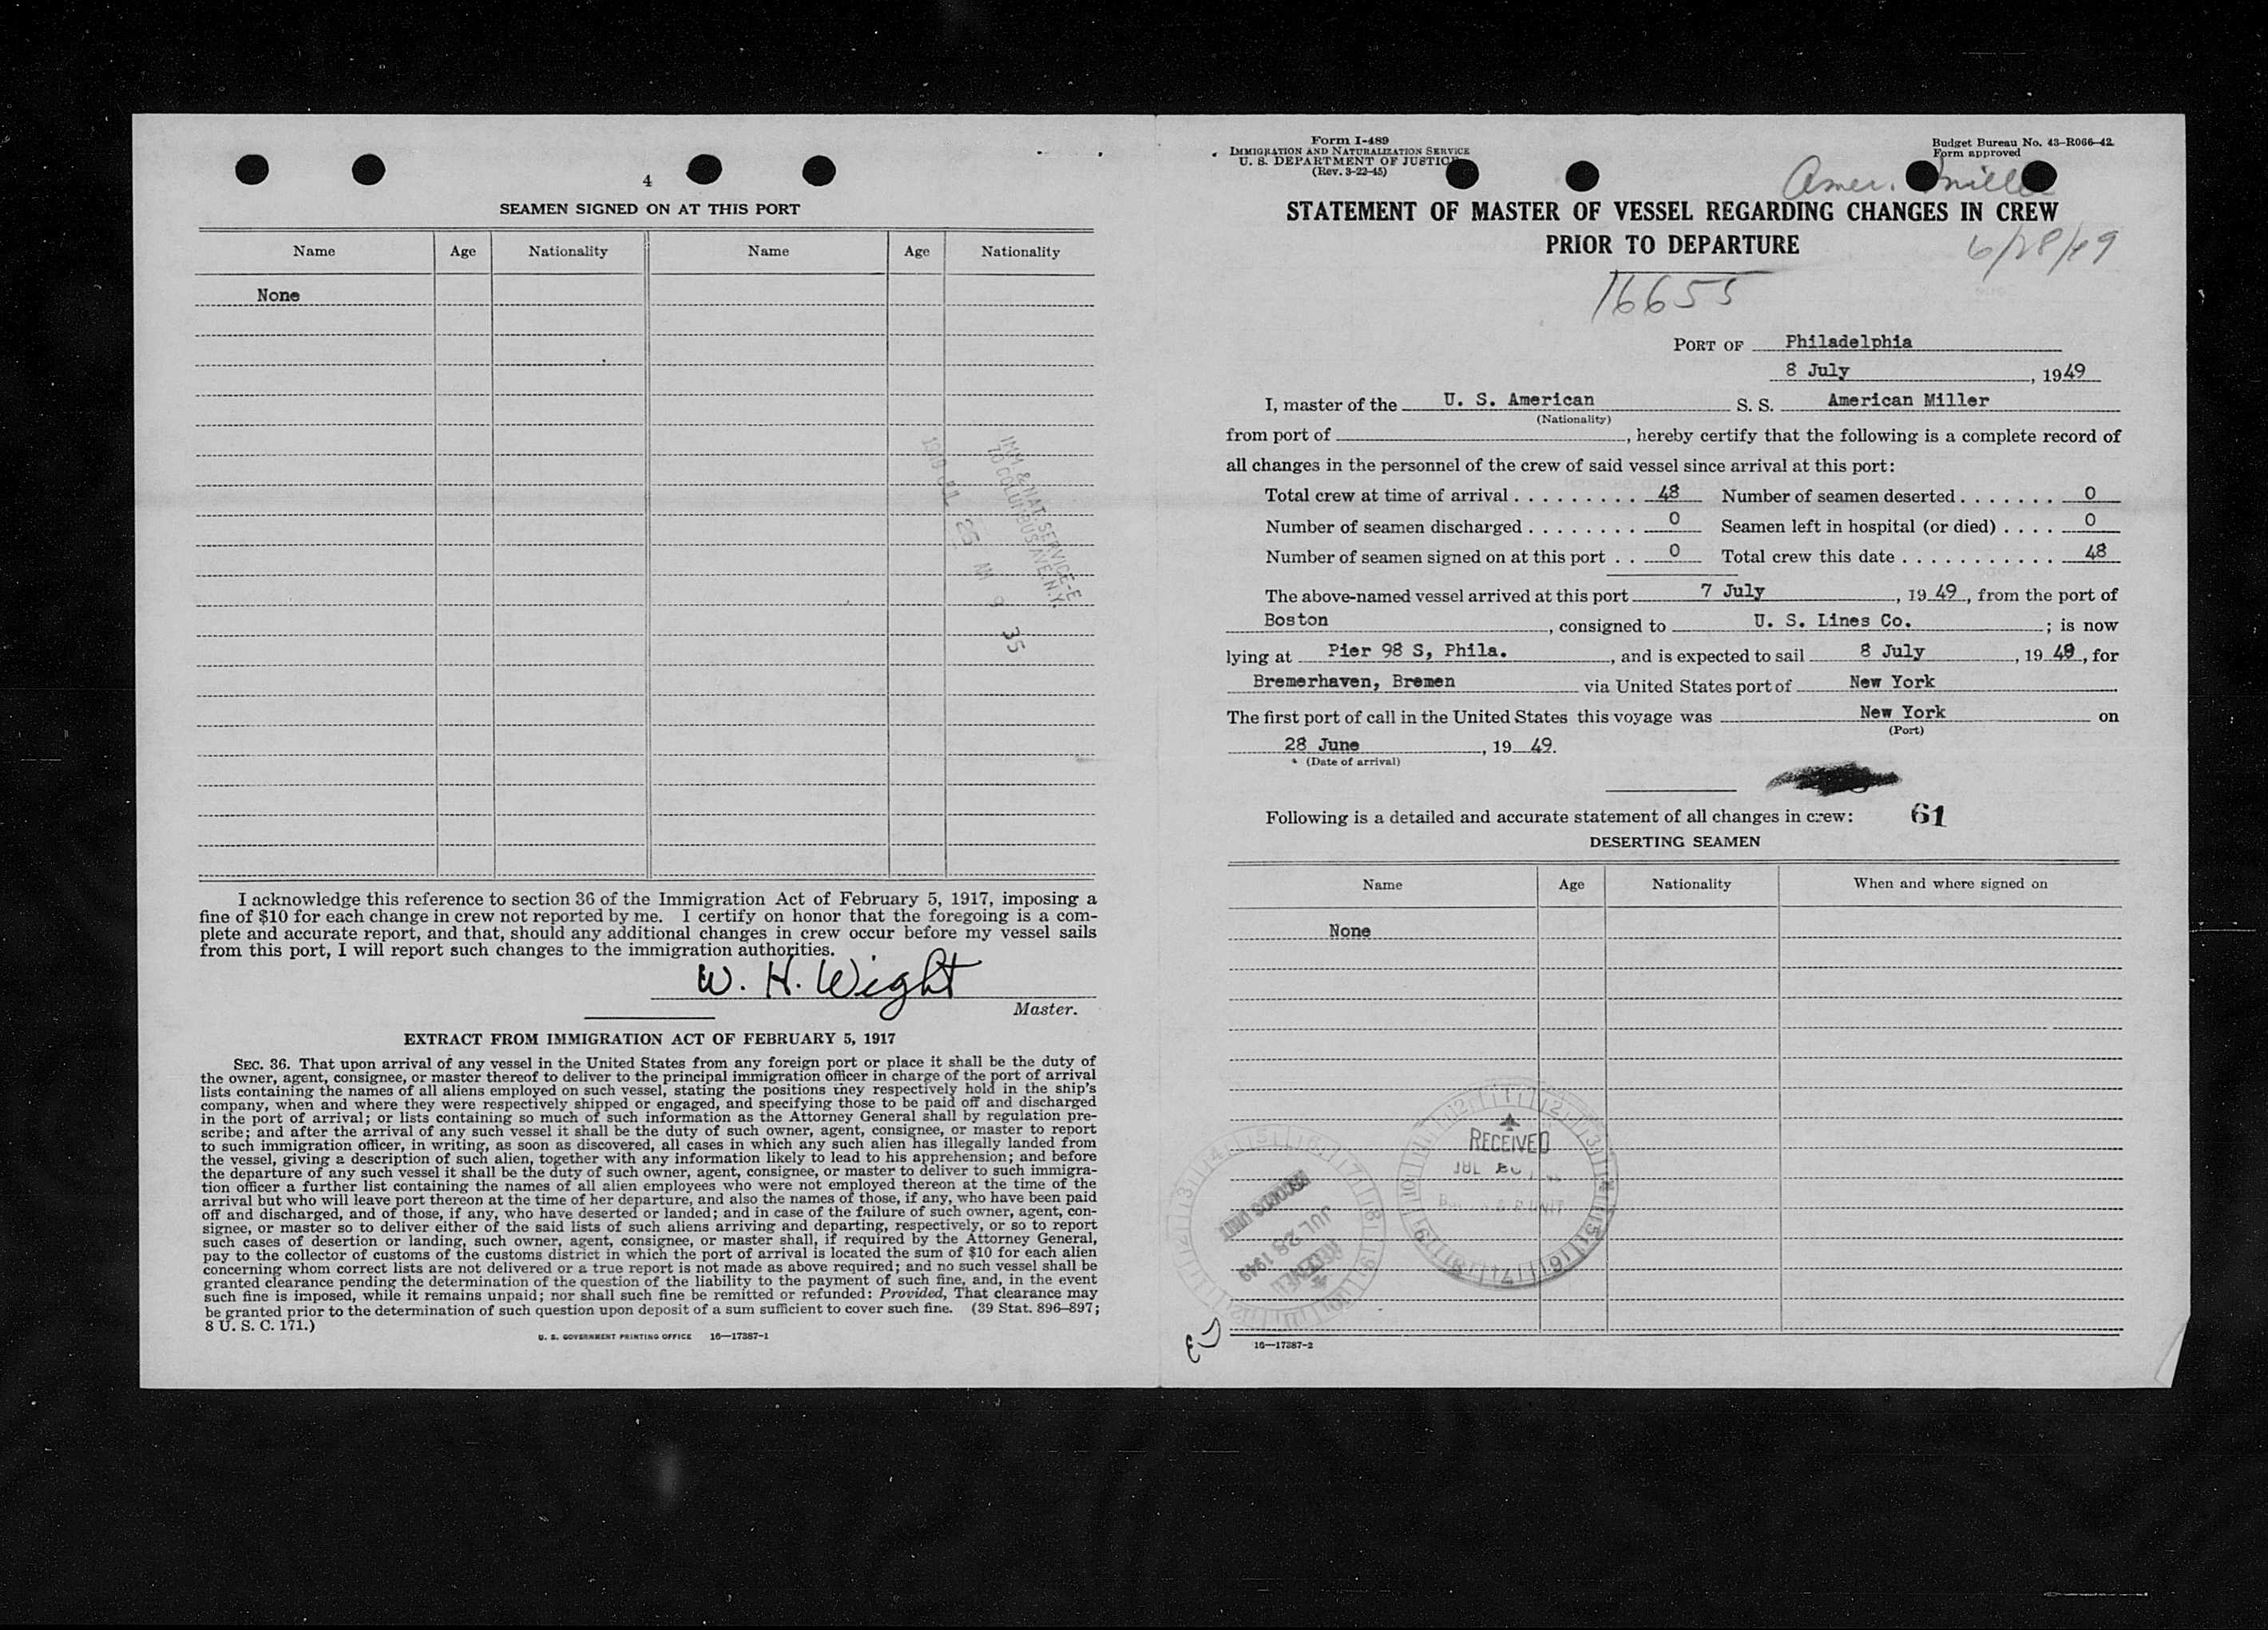 4
SEAMEN SIGNED ON AT THIS PORT
Name Age Nationality Name Age Nationality
None
IMM & NAT. SERVICE-E
70 COLUMBUS AVE. N.Y.
1949 JUL 25 AM 9 35
I acknowledge this reference to section 36 of the Immigration Act of February 5, 1917, imposing a
fine of $10 for each change in crew not reported by me. I certify on honor that the foregoing is a com-
plete and accurate report, and that, should any additional changes in crew occur before my vessel sails
from this port, I will report such changes to the immigration authorities.
W. H. Wight
Master.
EXTRACT FROM IMMIGRATION ACT OF FEBRUARY 5, 1917
SEC. 36. That upon arrival of any vessel in the United States from any foreign port or place it shall be the duty of
the owner, agent, consignee, or master thereof to deliver to the principal immigration officer in charge of the port of arrival
lists containing the names of all aliens employed on such vessel, stating the positions they respectively hold in the ship's
company, when and where they were respectively shipped or engaged, and specifying those to be paid off and discharged
in the port of arrival; or lists containing so much of such information as the Attorney General shall by regulation pre-
scribe; and after the arrival of any such vessel it shall be the duty of such owner, agent, consignee, or master to report
to such immigration officer, in writing, as soon as discovered, all cases in which any such alien has illegally landed from
the vessel, giving a description of such alien, together with any information likely to lead to his apprehension; and before
the departure of any such vessel it shall be the duty of such owner, agent, consignee, or master to deliver to such immigra-
tion officer a further list containing the names of all alien employees who were not employed thereon at the time of the
arrival but who will leave port thereon at the time of her departure, and also the names of those, if any, who have been paid
off and discharged, and of those, if any, who have deserted or landed; and in case of the failure of such owner, agent, con-
signee, or master so to deliver either of the said lists of such aliens arriving and departing, respectively, or so to report
such cases of desertion or landing, such owner, agent, consignee, or master shall, if required by the Attorney General,
pay to the collector of customs of the customs district in which the port of arrival is located the sum of $10 for each alien
concerning whom correct lists are not delivered or a true report is not made as above required; and no such vessel shall be
granted clearance pending the determination of the question of the liability to the payment of such fine, and, in the event
such fine is imposed, while it remains unpaid; nor shall such fine be remitted or refunded: Provided, That clearance may
be granted prior to the determination of such question upon deposit of a sum sufficient to cover such fine. (39 Stat. 896–897;
8 U. S. C. 171.)
U. S. GOVERNMENT PRINTING OFFICE 16—17387-1
Form I-489
IMMIGRATION AND NATURALIZATION SERVICE
U. S. DEPARTMENT OF JUSTICE
(Rev. 3-22-45)
Budget Bureau No. 43-R066-42.
Form approved
Amer. Miller
STATEMENT OF MASTER OF VESSEL REGARDING CHANGES IN CREW
PRIOR TO DEPARTURE
6/28/49
16655
PORT OF Philadelphia
8 July, 1949
I, master of the U. S. American S. S. American Miller
(Nationality)
from port of , hereby certify that the following is a complete record of
all changes in the personnel of the crew of said vessel since arrival at this port:
Total crew at time of arrival . . . . . . . . . 48 Number of seamen deserted . . . . . . . 0
Number of seamen discharged . . . . . . . . 0 Seamen left in hospital (or died) . . . . 0
Number of seamen signed on at this port . . 0 Total crew this date . . . . . . . . . . . 48
The above-named vessel arrived at this port 7 July, 1949, from the port of
Boston, consigned to U. S. Lines Co.; is now
lying at Pier 98 S, Phila., and is expected to sail 8 July, 1949, for
Bremerhaven, Bremen via United States port of New York
The first port of call in the United States this voyage was New York on
(Port)
28 June, 1949.
(Date of arrival)
Following is a detailed and accurate statement of all changes in crew: 61
DESERTING SEAMEN
Name Age Nationality When and where signed on
None
RECEIVED
JUL
RECORDS UNIT
JUL 28 1949
RECEIVED
16—17387-2